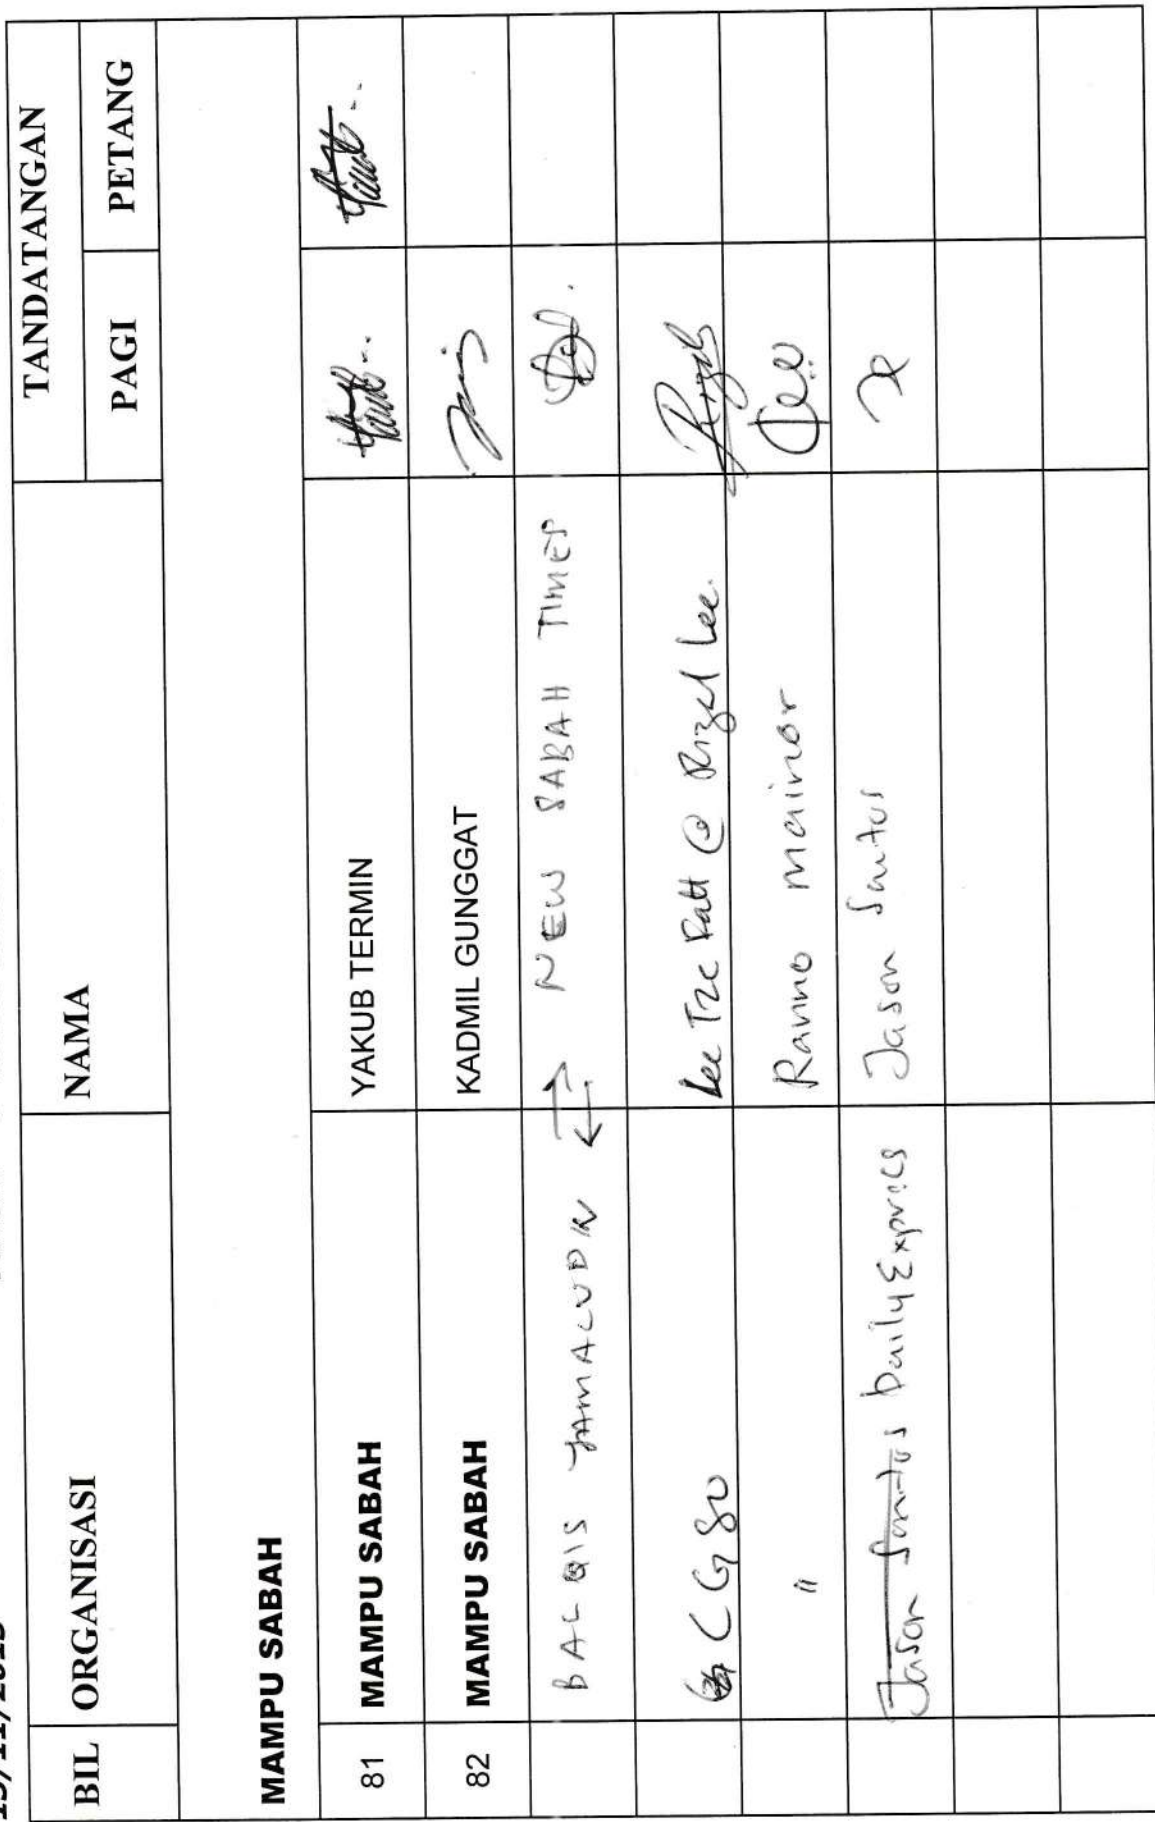 BIL ORGANISASI NAMA TANDATANGAN
PAGI PETANG
MAMPU SABAH
81 MAMPU SABAH YAKUB TERMIN
82 MAMPU SABAH KADMIL GUNGGAT
BALQIS JAMALUDIN NEW SABAH TIMES
CG 80 Lee Tze Ratt @ Rizal Lee
" Ranno mainor
Jason Santus Daily Express Jason Santus